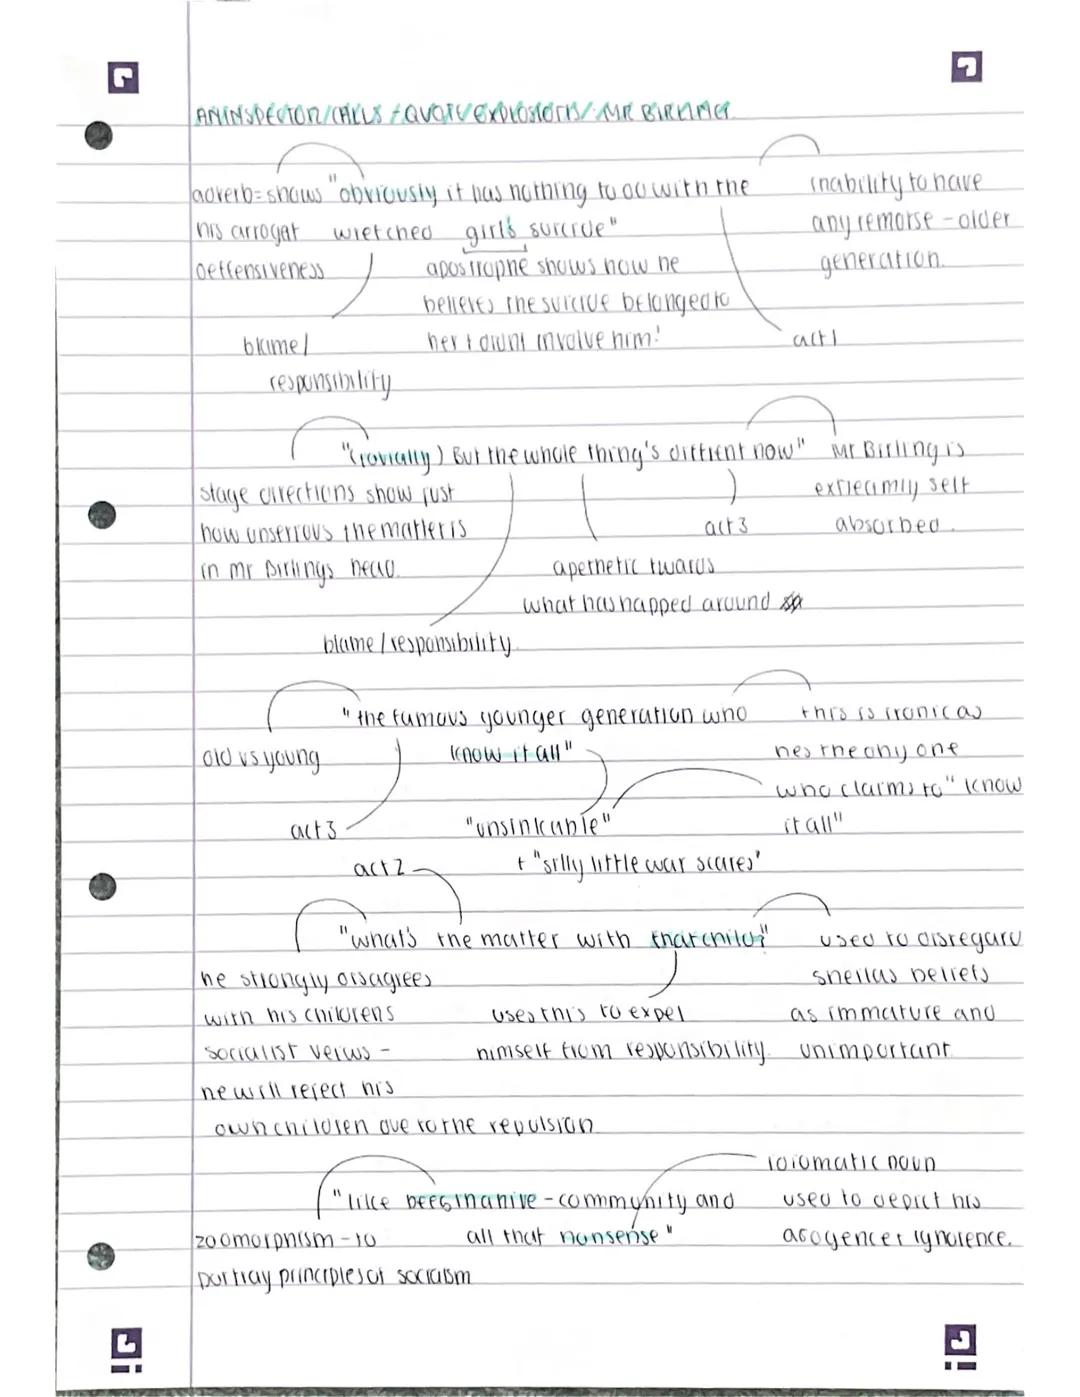 AN INSPECTOR CALLS - QUOTE EXPLOSIONS / MR BIRLING.
adverb = shows "obviously it has nothing to do with the
his arrogat wretched girl's suicide"
deffensiveness
inability to have
any remorse - older
generation.
apostrophe shows how he
believes the suicide belonged to
her + didnt involve him!
blame/
responsibility
act 1
"(jovially) But the whole thing's diffient now"
stage directions show just
how unserious the matter is
in mr Birlings head.
Mr Birling is
extreamily self
absorbed.
act 3
apethetic twards
what has happed around
blame / responsibility.
"the famous younger generation who
know it all"
old vs young
act 3
this is ironic as
hes the only one
who claims to "know
it all"
"unsinkable"
+ "silly little war scares"
act 2
"what's the matter with that child?"
he strongly disagrees
with his childrens
socialist veiws -
he will reject his
own children due to the repulsion
uses this to expel
himself from responsibility.
used to disregard
sheilas beliefs
as immature and
unimportant
"like bees in a hive - community and
all that nonsense"
zoomorphism - to
portray principles of socialism
idiomatic noun
used to depict his
arogence + ignorence.